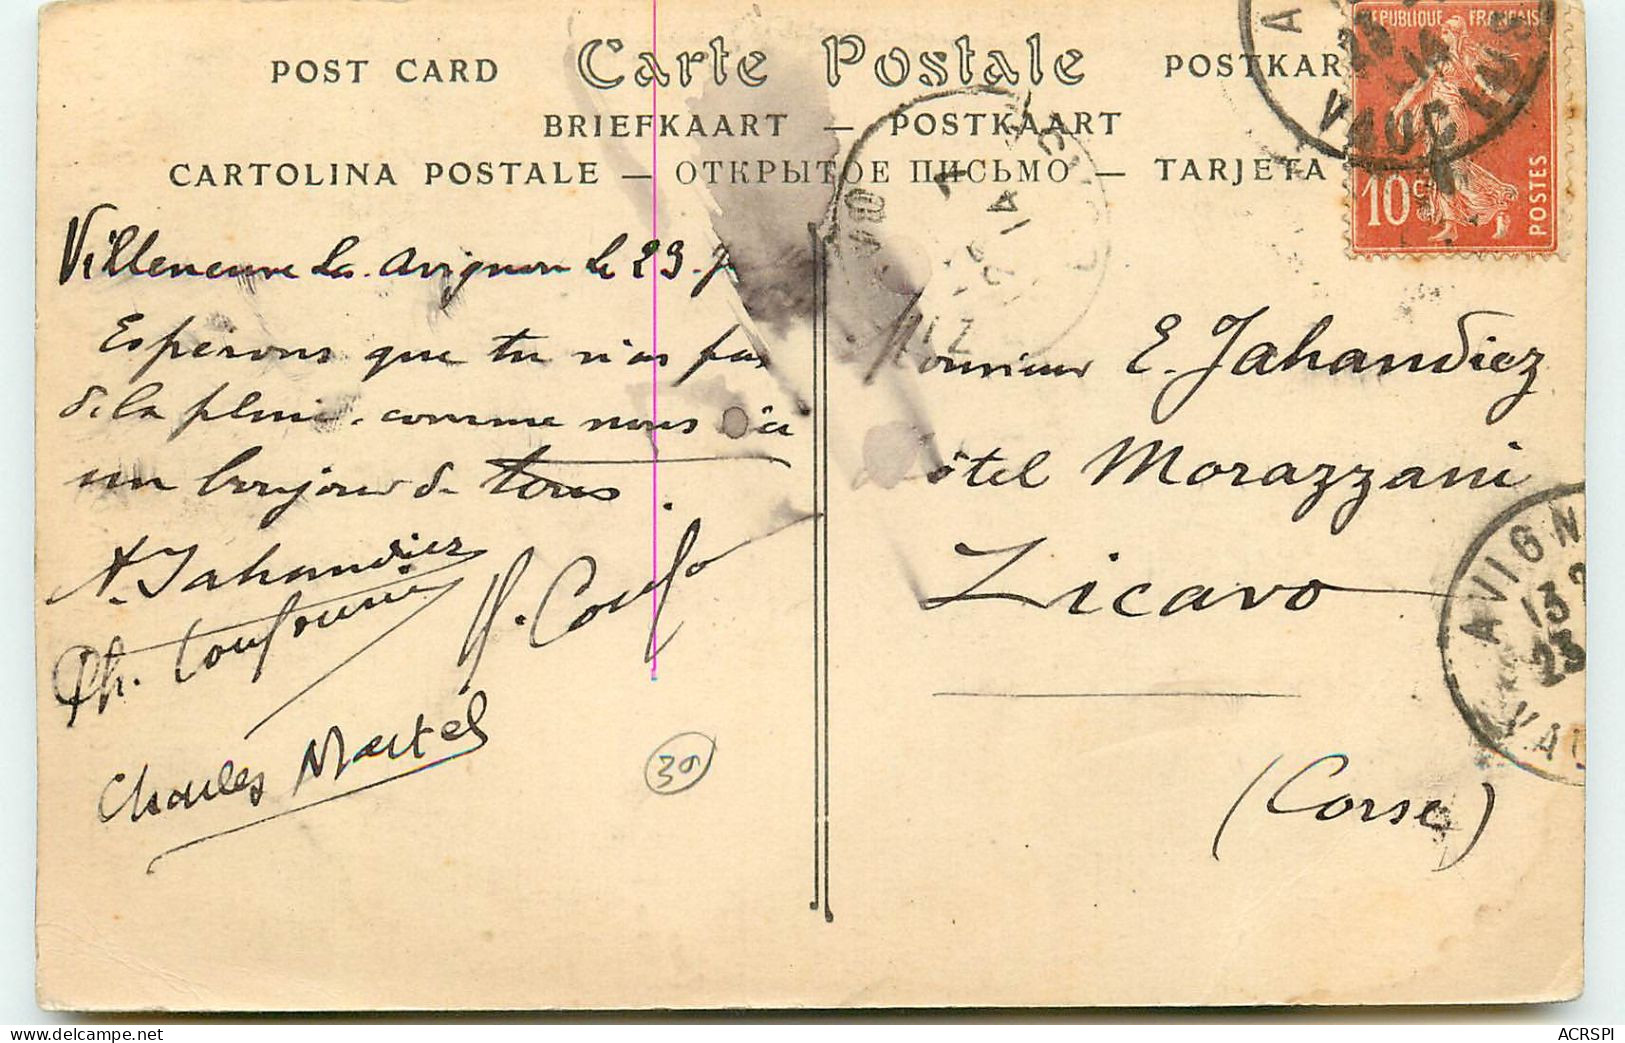 POST CARD Carte Postale POSTKAR
BRIEFKAART — POSTKAART
CARTOLINA POSTALE — ОТКРЫТОЕ ПИСЬМО — TARJETA
REPUBLIQUE FRANÇAISE
10c
POSTES
VAUCLUSE
Villeneuve les avignon le 23
Espérons que tu n'as pas
de la pluie comme nous ici
un bonjour de tous
A. Jahandiez
Charles Martel
39
Monsieur E. Jahandiez
Hôtel Morazzani
Zicavo
(Corse)
AVIGN
13
23
VAU
ACRSPI